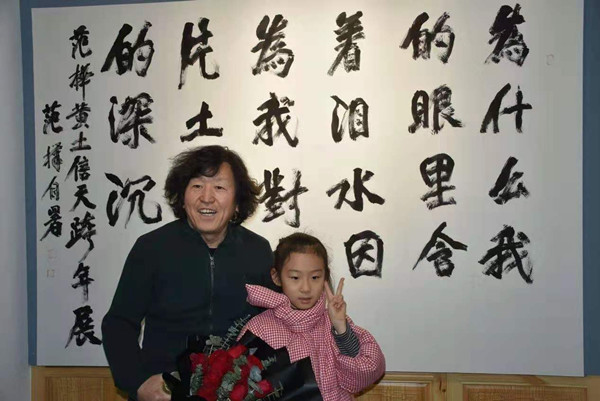 為什么我
的眼里含
着泪水因
為我對
片土
的深沉
范 黄土信天跨年展
范 自署